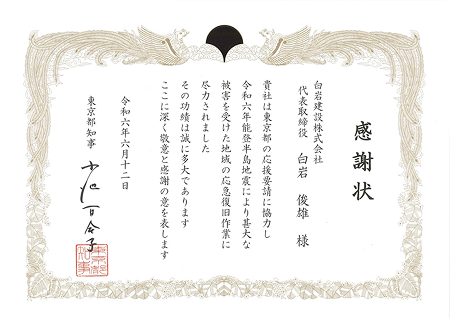 感謝状
白岩建設株式会社
代表取締役 白岩 俊雄 様
貴社は東京都の応援要請に協力し
令和六年能登半島地震により甚大な
被害を受けた地域の応急復旧作業に
尽力されました
その功績は誠に多大であります
ここに深く敬意と感謝の意を表します
令和六年六月十二日
東京都知事 小池百合子
東京都知事